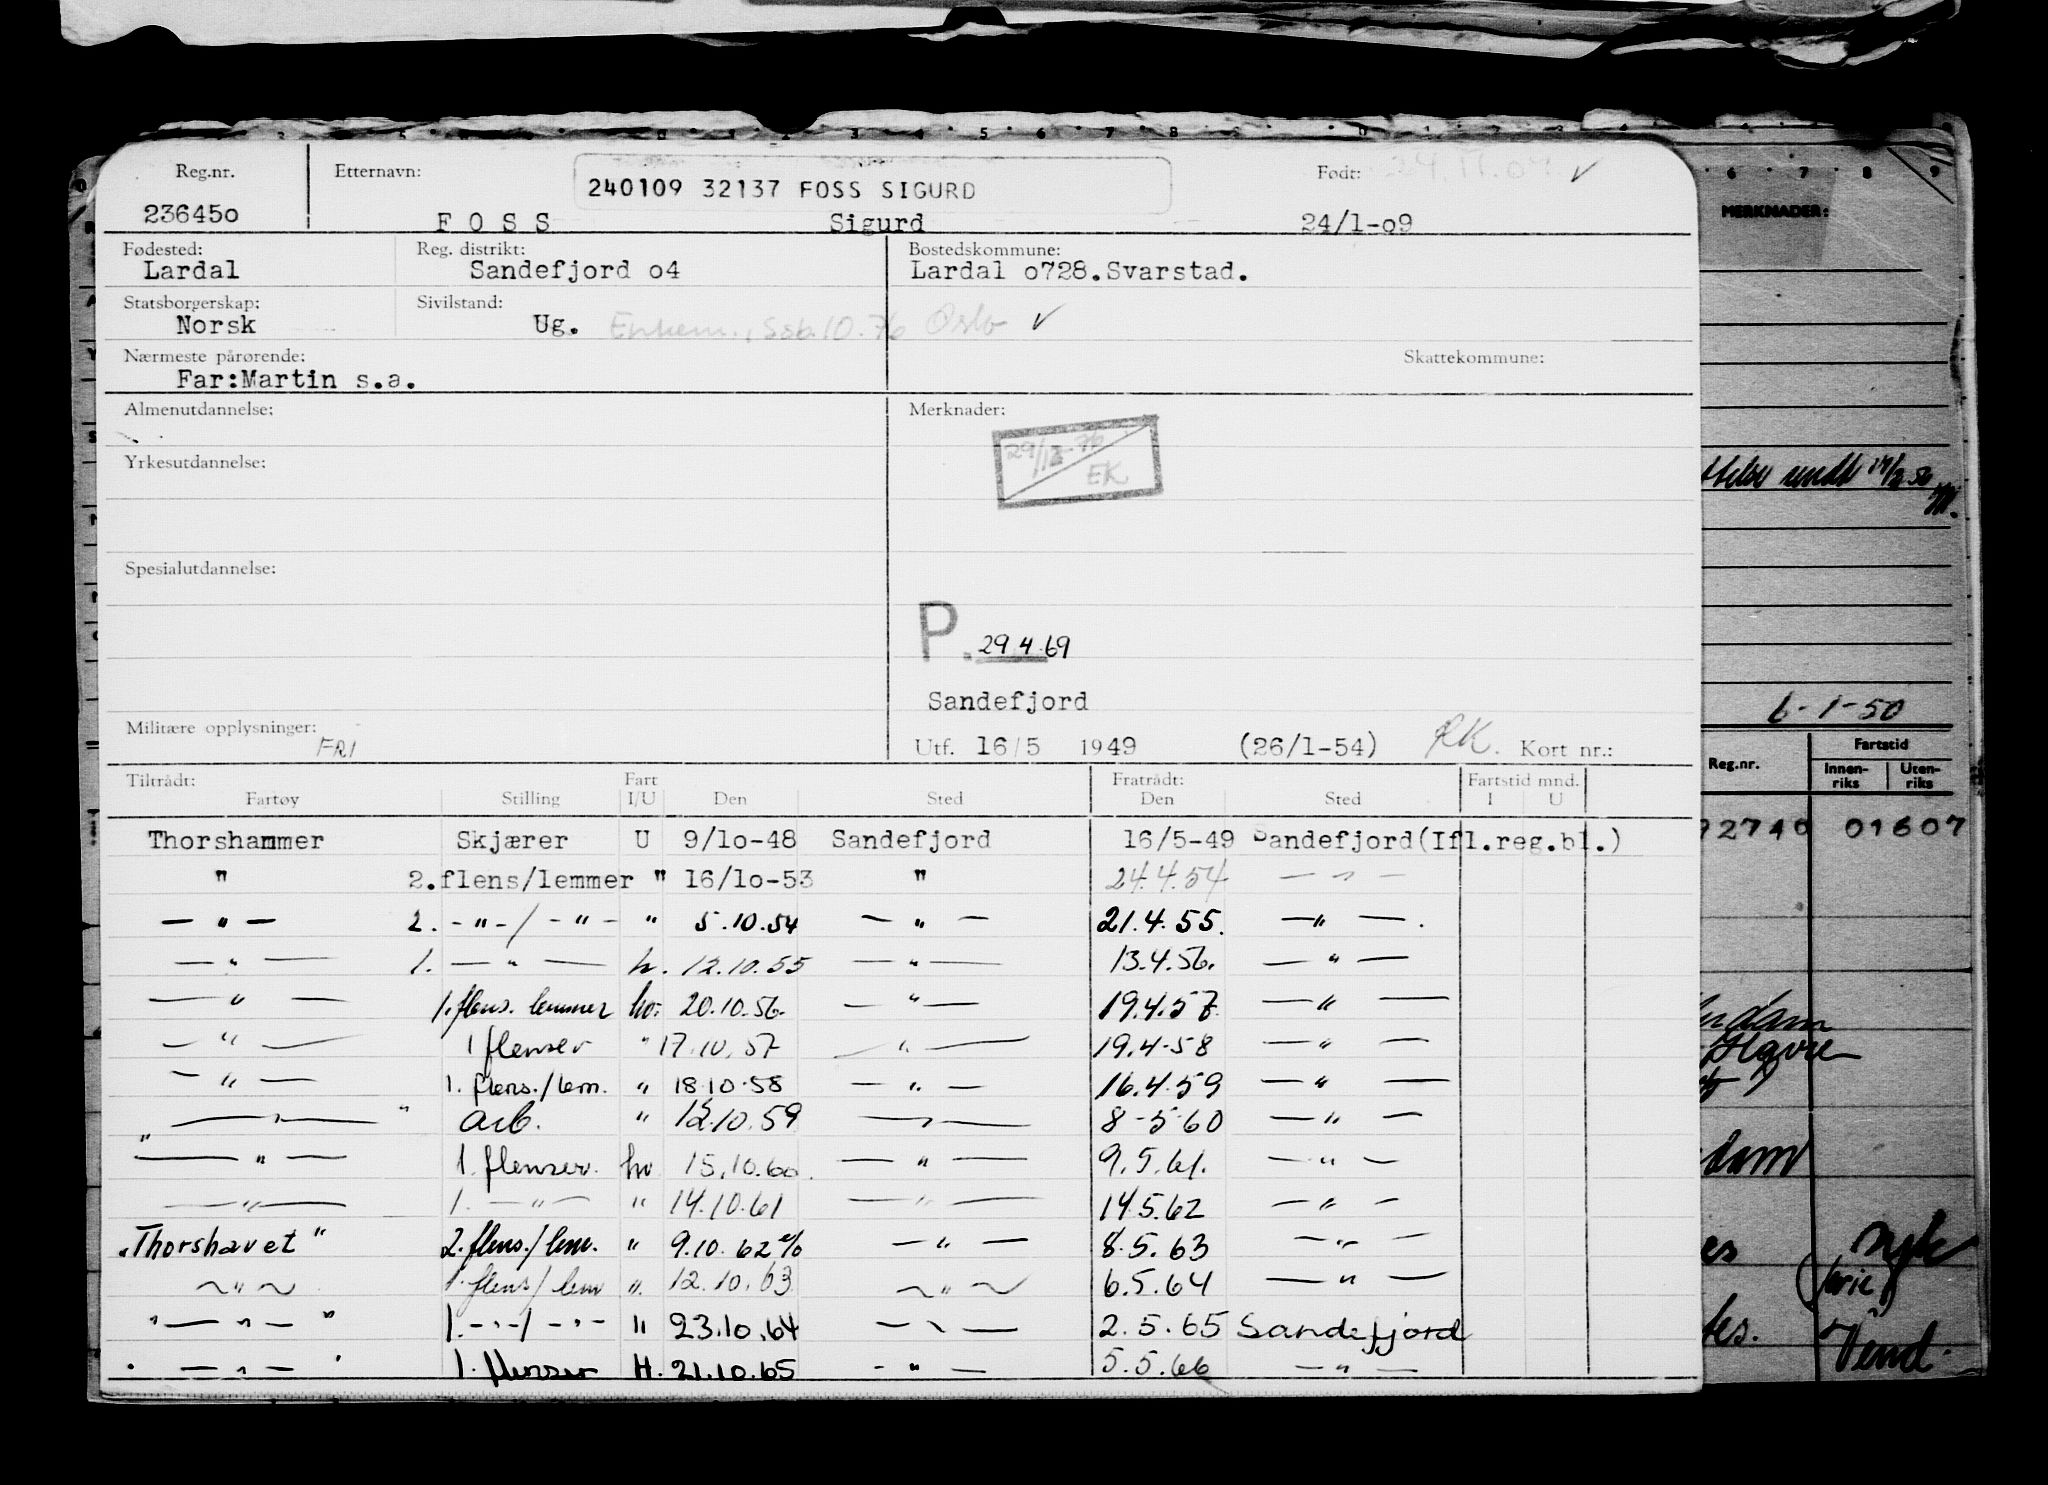 Reg.nr. Etternavn: 240109 32137 FOSS SIGURD Født:
236450 F O S S Sigurd 24/1-o9
Fødested: Reg. distrikt: Bostedskommune:
Lardal Sandefjord o4 Lardal o728.Svarstad.
Statsborgerskap: Sivilstand:
Norsk Ug. Enkem., Sob.10.76 Oslo ✓
Nærmeste pårørende: Skattekommune:
Far:Martin s.a.
Almenutdannelse: Merknader:
29/12-76 EK
Yrkesutdannelse:
Spesialutdannelse:
P. 29.4.69
Sandefjord
Militære opplysninger: FRI
Utf. 16/5 1949 (26/1-54) RK. Kort nr.:
Tiltrådt: Fart Fratrådt: Fartstid mnd.
Fartøy Stilling I/U Den Sted Den Sted I U
Thorshammer Skjærer U 9/1o-48 Sandefjord 16/5-49 Sandefjord(Ifl.reg.bl.)
" 2.flens/lemmer " 16/1o-53 " 24.4.54 — " —
— " — 2. -"-/-"- " 5.10.54 — " — 21.4.55. —"—.
— " — 1. — " — h. 12.10.55 — " — 13.4.56. — " —
— " — 1.flens. lemmer hv. 20.10.56. — " — 19.4.57. — " —
— " — 1 flenser " 17.10.57 — " — 19.4-58 — " —
— " — 1. flens./lem. " 18.10.58 — " — 16.4.59 — " —
" — " — " arb. " 12.10.59 — " — 8-5-60 — " —
— " — 1. flenser. hv 15.10.60. — " — 9.5.61. — " —
— " — 1. — " — " 14.10.61 — " — 14.5.62 — " —
"Thorshavet" 2.flens./lem. " 9.10.62 — " — 8.5.63 — " —
~ " ~ 1. flens/lem ". 12.10.63 ~ " ~ 6.5.64 — " —
" — " — " 1.-"-/-"- " 23.10.64 — " — 2.5.65 Sandefjord
" — " — " 1. flenser H. 21.10.65 - " — 5.5.66 — " —
MERKNADER:
sendt
6-1-50
Reg.nr. Fartstid
Innen-riks Uten-riks
92740 01607
Havre
dam